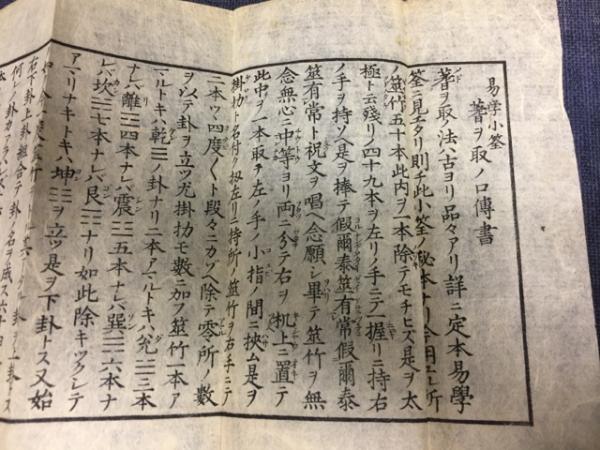 易学小筌
蓍ヲ取ノ口傳書
蓍ヲ取ル法ハ古ヨリ品々アリ詳ニ定本易學
筌ニ見エタリ則チ此小筌ノ秘本ナリ今用ユル所
ノ筮竹五十本此内ヲ一本除テモチヒズ是ヲ太
極ト云殘リノ四十九本ヲ左リノ手ニテ一握リニ持右
ノ手ヲ持ソヘ是ヲ捧テ假爾泰筮有常假爾泰
筮有常ト祝文ヲ唱ヘ念願シ畢テ筮竹ヲ無
念無心ニ中等ヨリ両ニ分テ右ヲ机上ニ置テ
此中ヲ一本取テ左ノ手ノ小指ノ間ニ挾ム是ヲ
掛扐ト名付ク扨左リニ持所ノ筮竹ヲ右手ニテ
二本ヅヽ四度〱ト段々ニカゾヘ除テ零所ノ數
ヲ以テ卦ヲ立ツ尤掛扐モ數ニ加フ筮竹一本ア
マルトキハ乾☰ノ卦ナリ二本アマルトキハ兊☱三本
ナレバ離☲四本ナレバ震☳五本ナレバ巽☴六本ナ
レバ坎☵七本ナレバ艮☶ナリ如此除キツクシテ
アマリナキトキハ坤☷ヲ立ツ是ヲ下卦トス又始
右下卦上卦組合テ卦ノ名ヲ成ス六十四